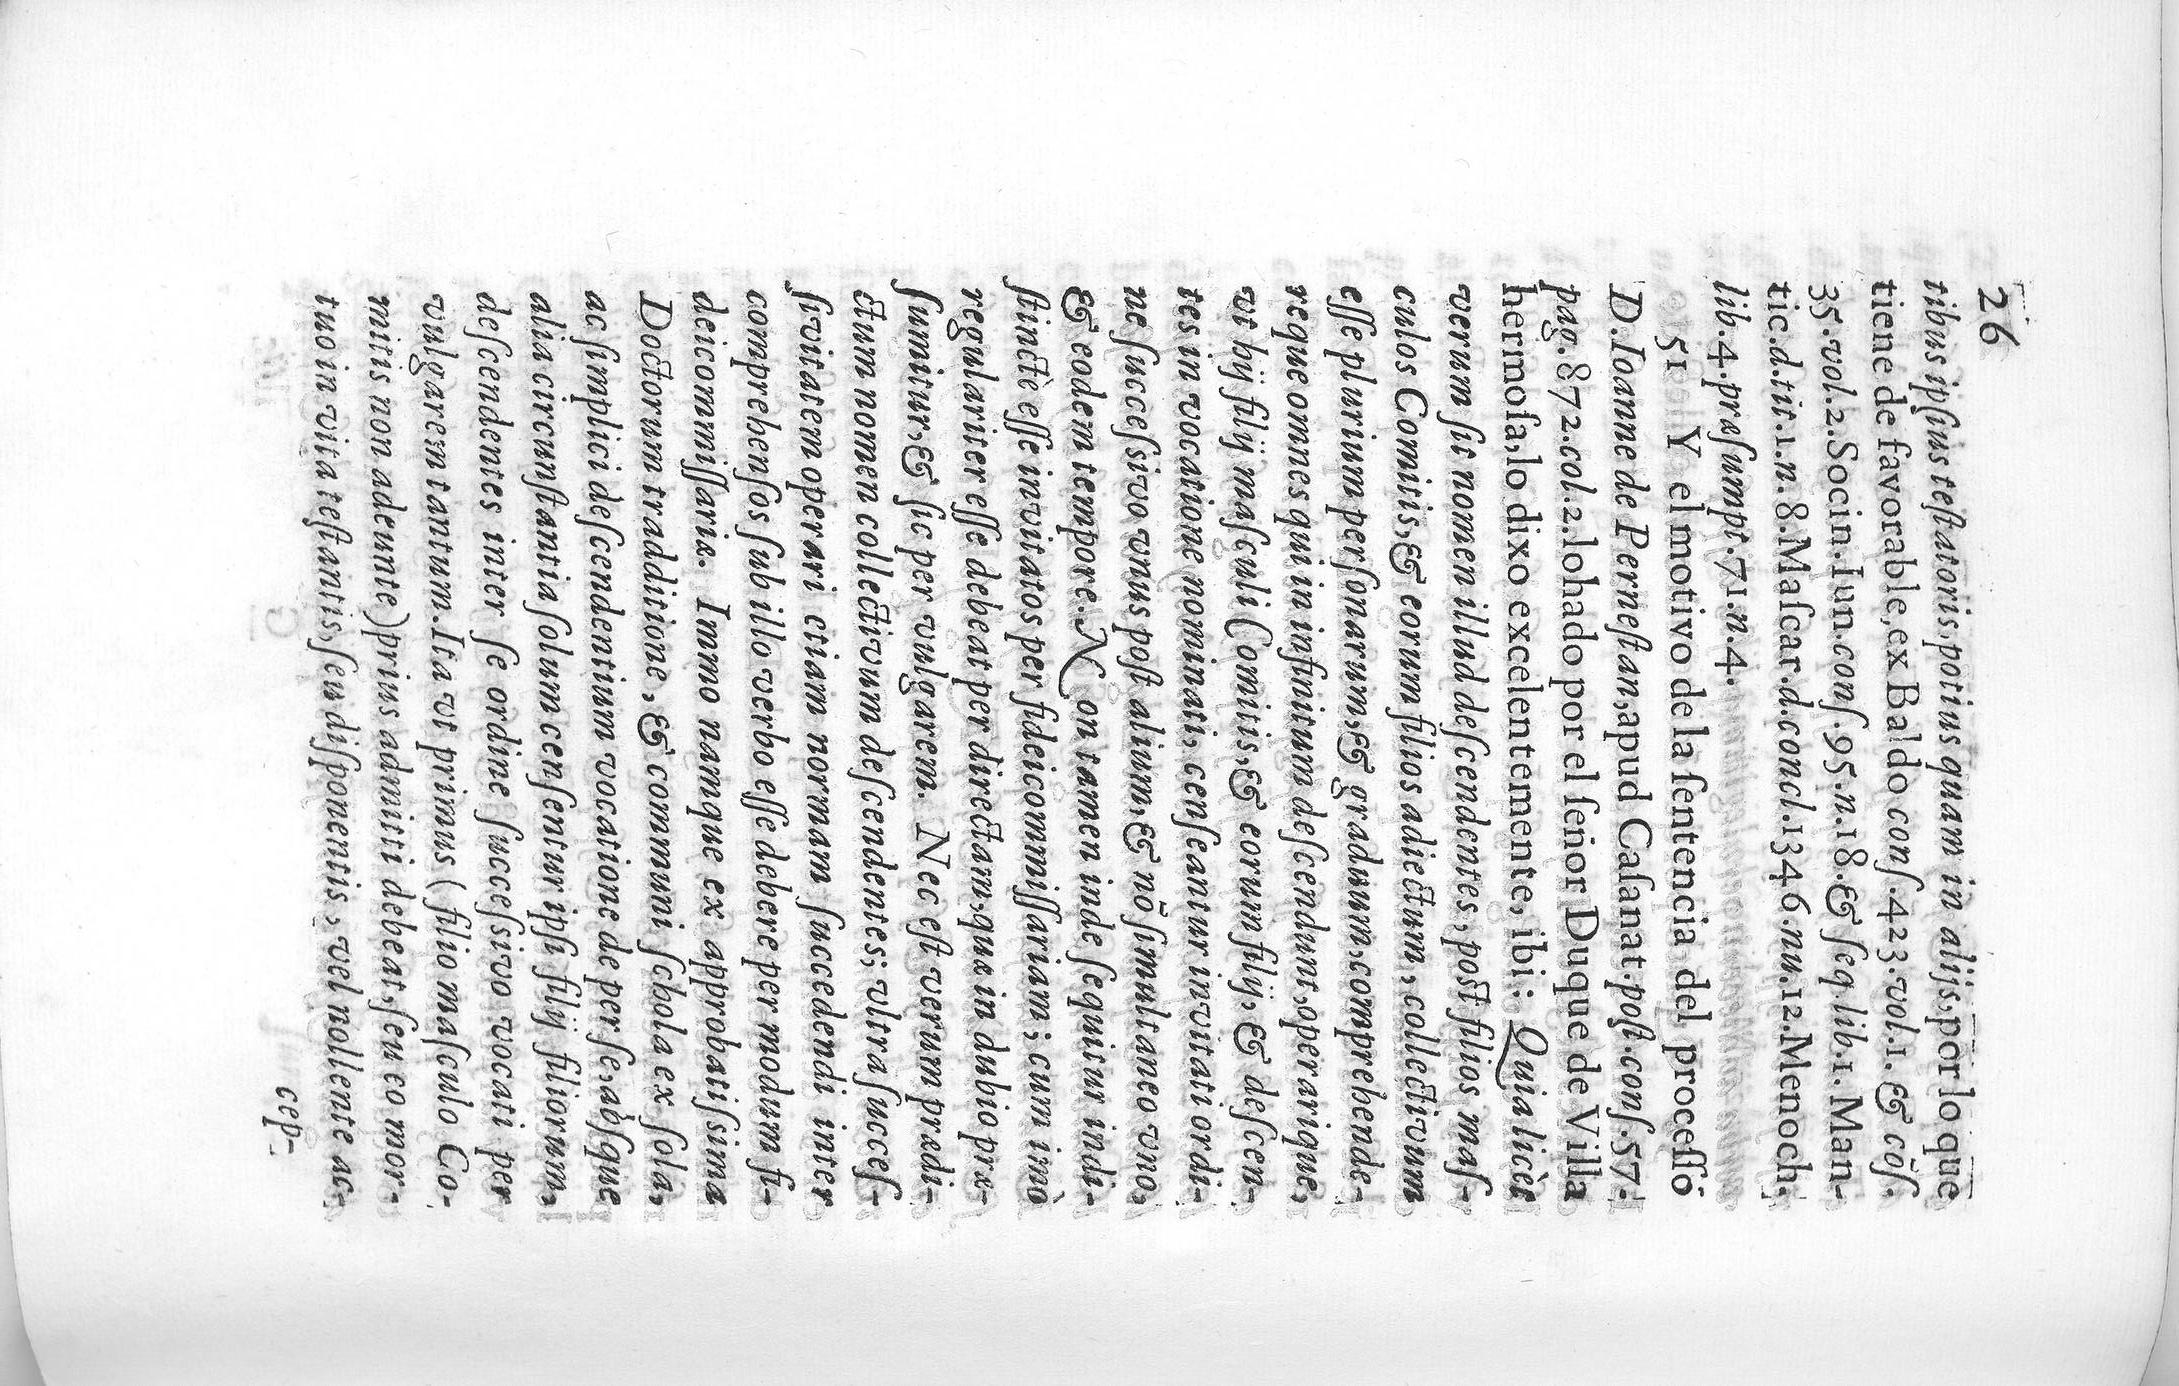 26
tibus ipſius teſtatoris, potius quam in alijs, por lo que
tiene de favorable, ex Baldo conſ. 423. vol. 1. & cõſ.
35. vol. 2. Socin. Iun. conſ. 95. n. 18. & ſeq. lib. 1. Man-
tic. d. tit. 1. n. 8. Maſcar. d. concl. 1346. nu. 12. Menoch.
lib. 4. præſumpt. 71. n. 4.
51 Y el motivo de la ſentencia del proceſſo
D. Ioanne de Perneſtan, apud Caſanat. poſt. conſ. 57.
pag. 872. col. 2. lohado por el ſeñor Duque de Villa
hermoſa, lo dixo excelentemente, ibi: Quia licèt
verum ſit nomen illud deſcendentes, poſt filios maſ-
culos Comitis, & eorum filios adiectum, collectivum
eſſe plurium perſonarum, & graduum, comprehende-
reque omnes qui in infinitum deſcendunt, operarique,
vt hÿ filÿ maſculi Comitis, & eorum filÿ, & deſcen-
tes in vocatione nominati, cenſeantur invitati ordi-
ne ſucceſsivo vnus poſt alium, & nõ ſimultaneo vno,
& eodem tempore. Non tamen inde ſequitur indi-
ſtinctè eſſe invitatos per fideicommiſſariam; cum imò
regulariter eſſe debeat per directam, quæ in dubio præ-
ſumitur, & ſic per vulgarem. Nec eſt verum prædi-
ctum nomen collectivum deſcendentes; vltra ſucceſ-
ſivitatem operari etiam normam ſuccedendi inter
comprehenſos ſub illo verbo eſſe debere per modum fi-
deicommiſſariæ. Immo namque ex approbatiſsima
Doctorum tradditione, & communi ſchola ex ſola,
ac ſimplici deſcendentium vocatione de per ſe, abſque
alia circunſtantia ſolum cenſentur ipſi filÿ filiorum,
deſcendentes inter ſe ordine ſucceſsivo vocati per
vulgarem tantum. Ita vt primus (filio maſculo Co-
mitis non adeunte) prius admiti debeat, ſeu eo mor-
tuo in vita teſtantis, ſeu diſponentis, vel nollente ac-
cep-